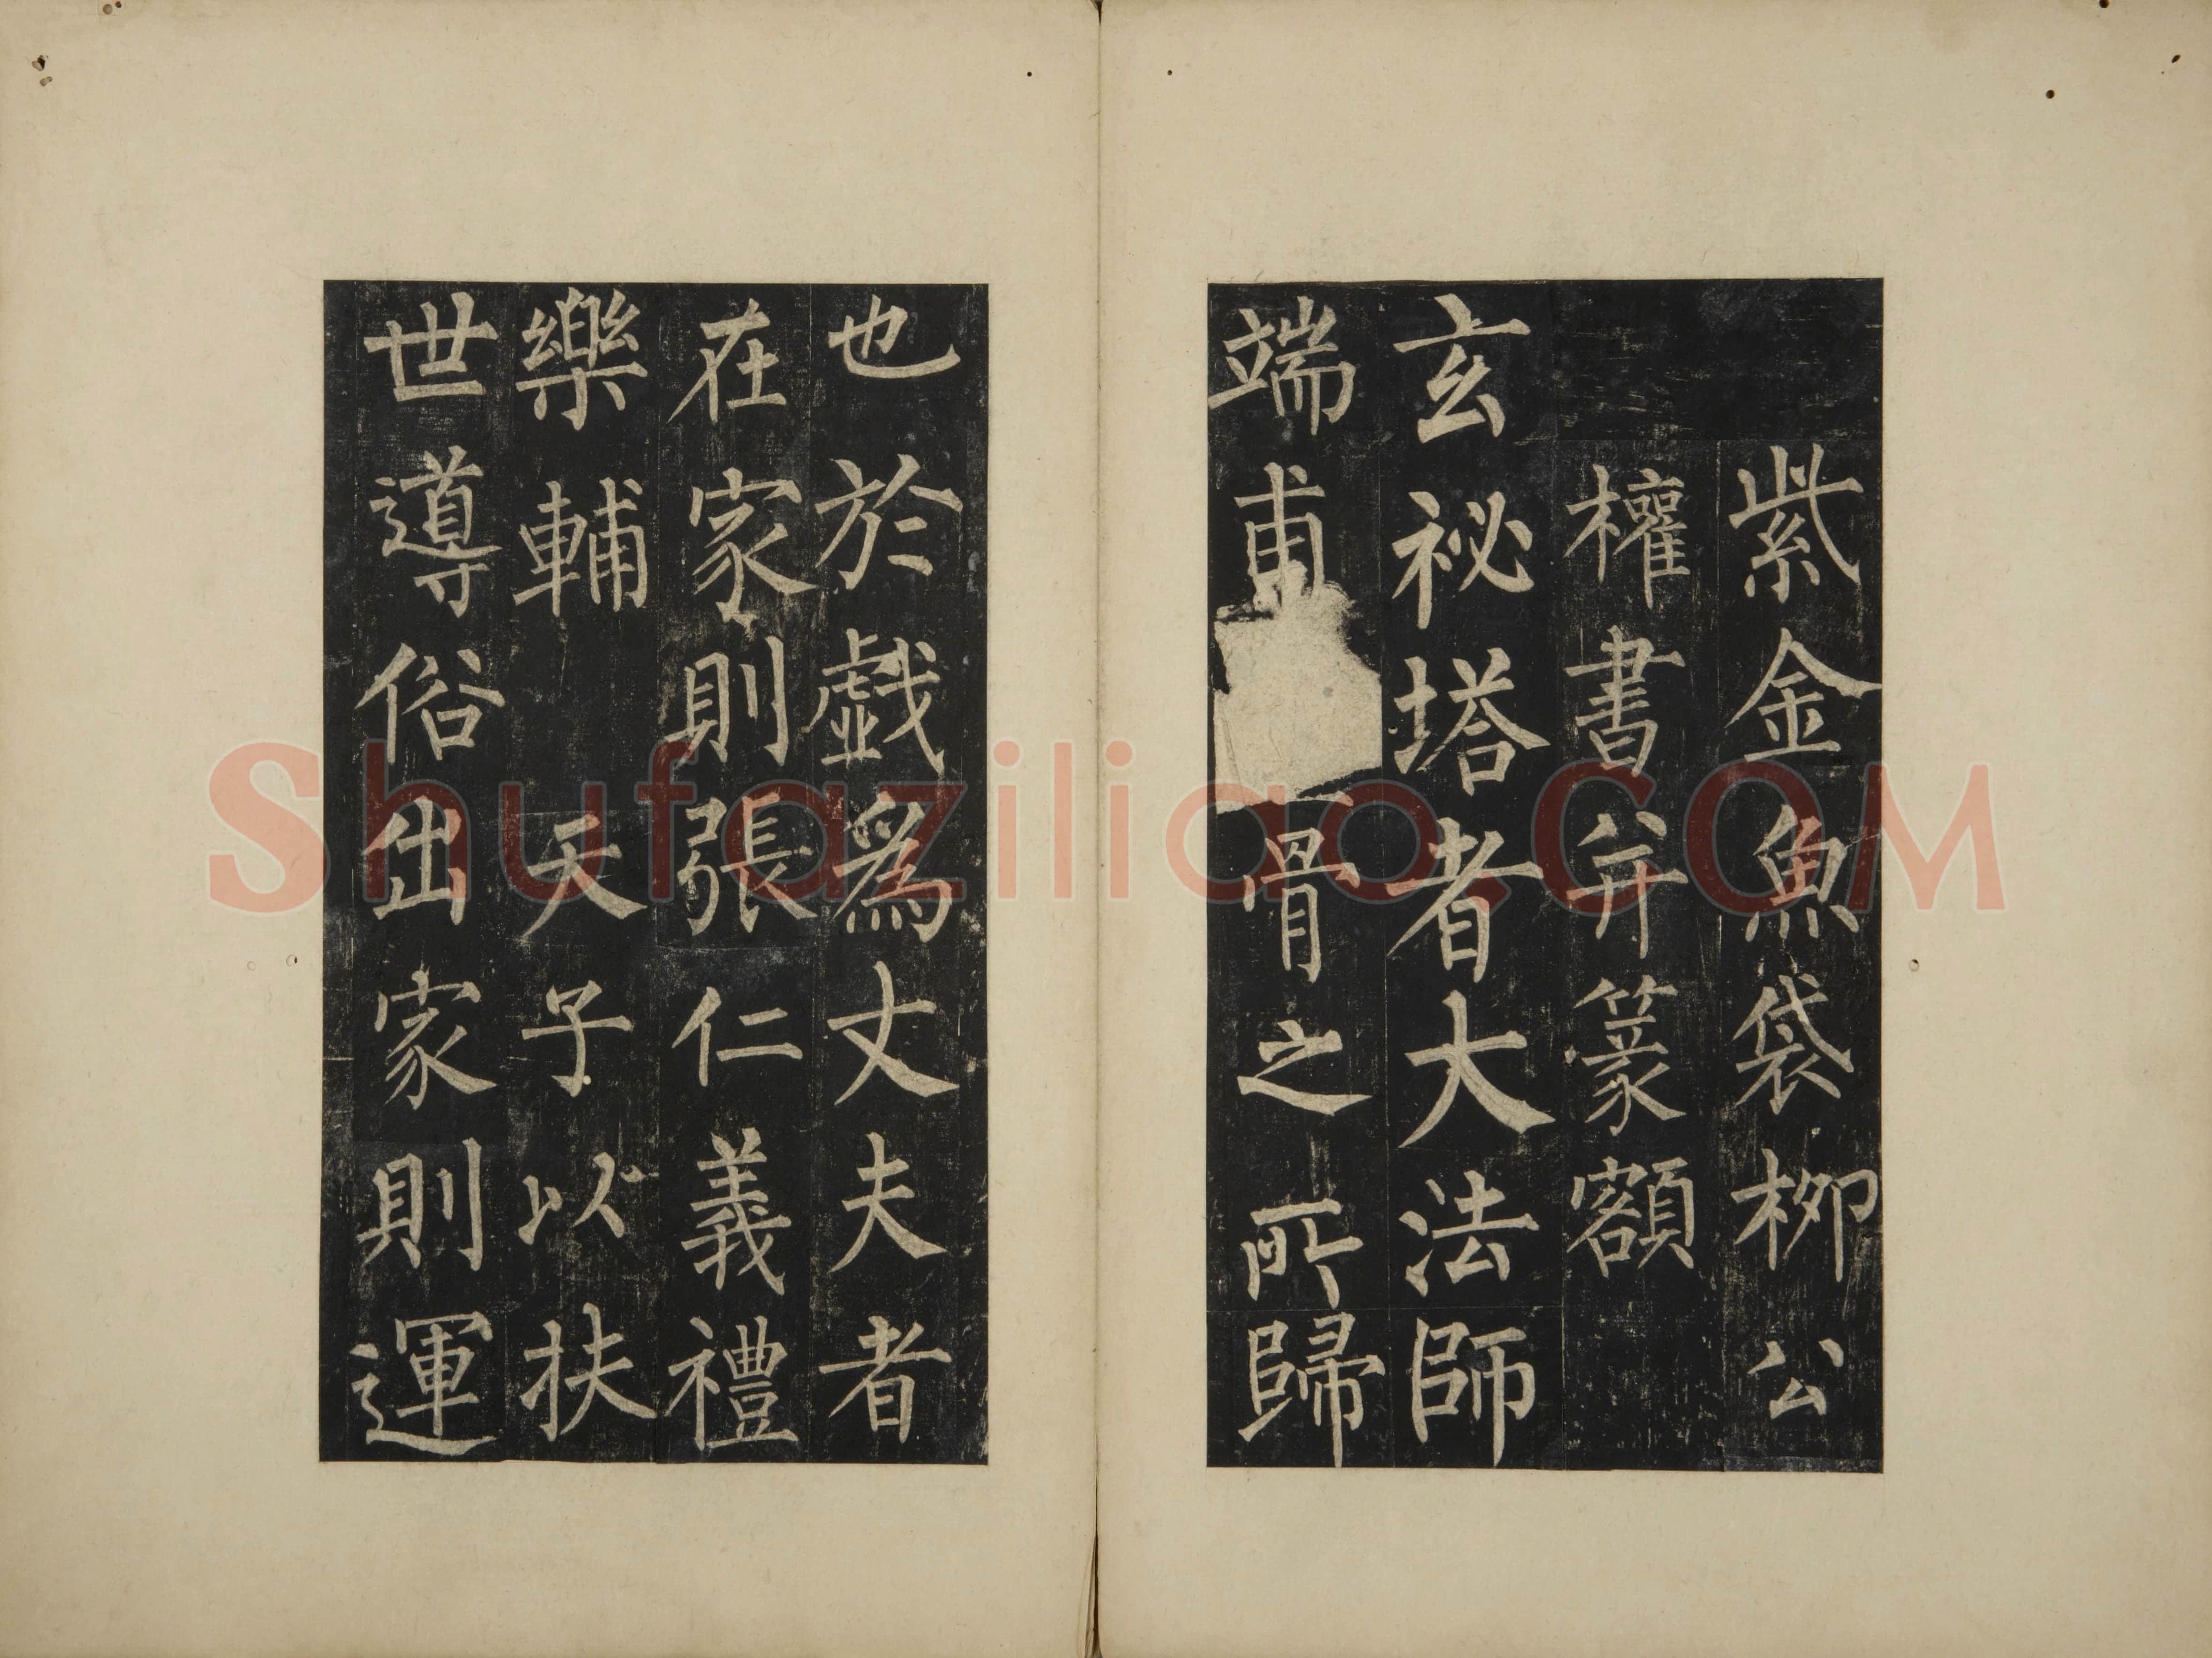 紫金魚袋柳公
權書并篆額
玄祕塔者大法師
端甫骨之所歸
也於戲爲丈夫者
在家則張仁義禮
樂輔天子以扶
世導俗出家則運
Shufaziliao.COM